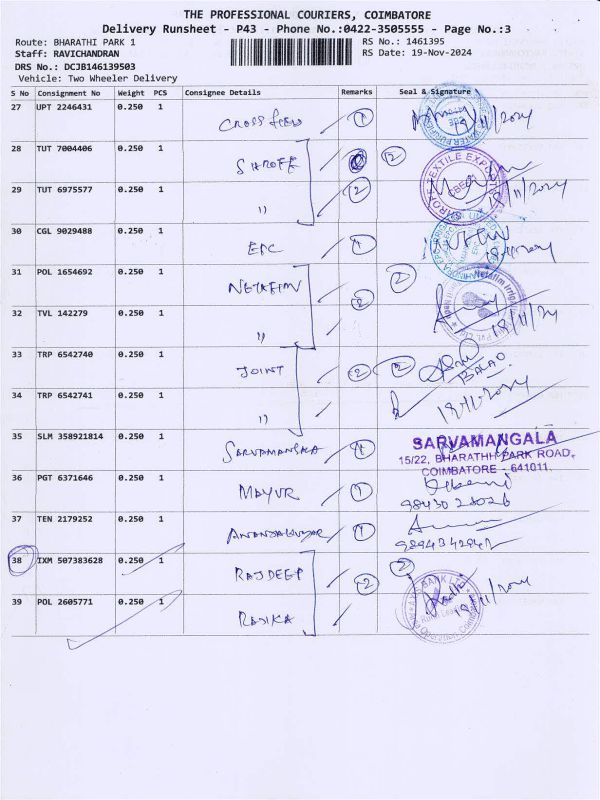 THE PROFESSIONAL COURIERS, COIMBATORE
Delivery Runsheet - P43 - Phone No.:0422-3505555 - Page No.:3
Route: BHARATHI PARK 1 RS No.: 1461395
Staff: RAVICHANDRAN RS Date: 19-Nov-2024
DRS No.: DCJB146139503
Vehicle: Two Wheeler Delivery
S No Consignment No Weight PCS Consignee Details Remarks Seal & Signature
27 UPT 2246431 0.250 1 1
28 TUT 7004406 0.250 1 SHROFF 2
29 TUT 6975577 0.250 1 " 2
30 CGL 9029488 0.250 1 EPC 1
31 POL 1654692 0.250 1 NETAFIM 2 2
32 TVL 142279 0.250 1 " 18/11/24
33 TRP 6542740 0.250 1 JOINT 2 2
34 TRP 6542741 0.250 1 "
35 SLM 358921814 0.250 1 SARVAMANGLA 1 SARVAMANGALA
15/22, BHARATHI PARK ROAD,
COIMBATORE - 641011.
36 PGT 6371646 0.250 1 MAYUR 1
37 TEN 2179252 0.250 1 1
38 IXM 507383628 0.250 1 RAJDEEP 2 2
39 POL 2605771 0.250 1 RADIKA